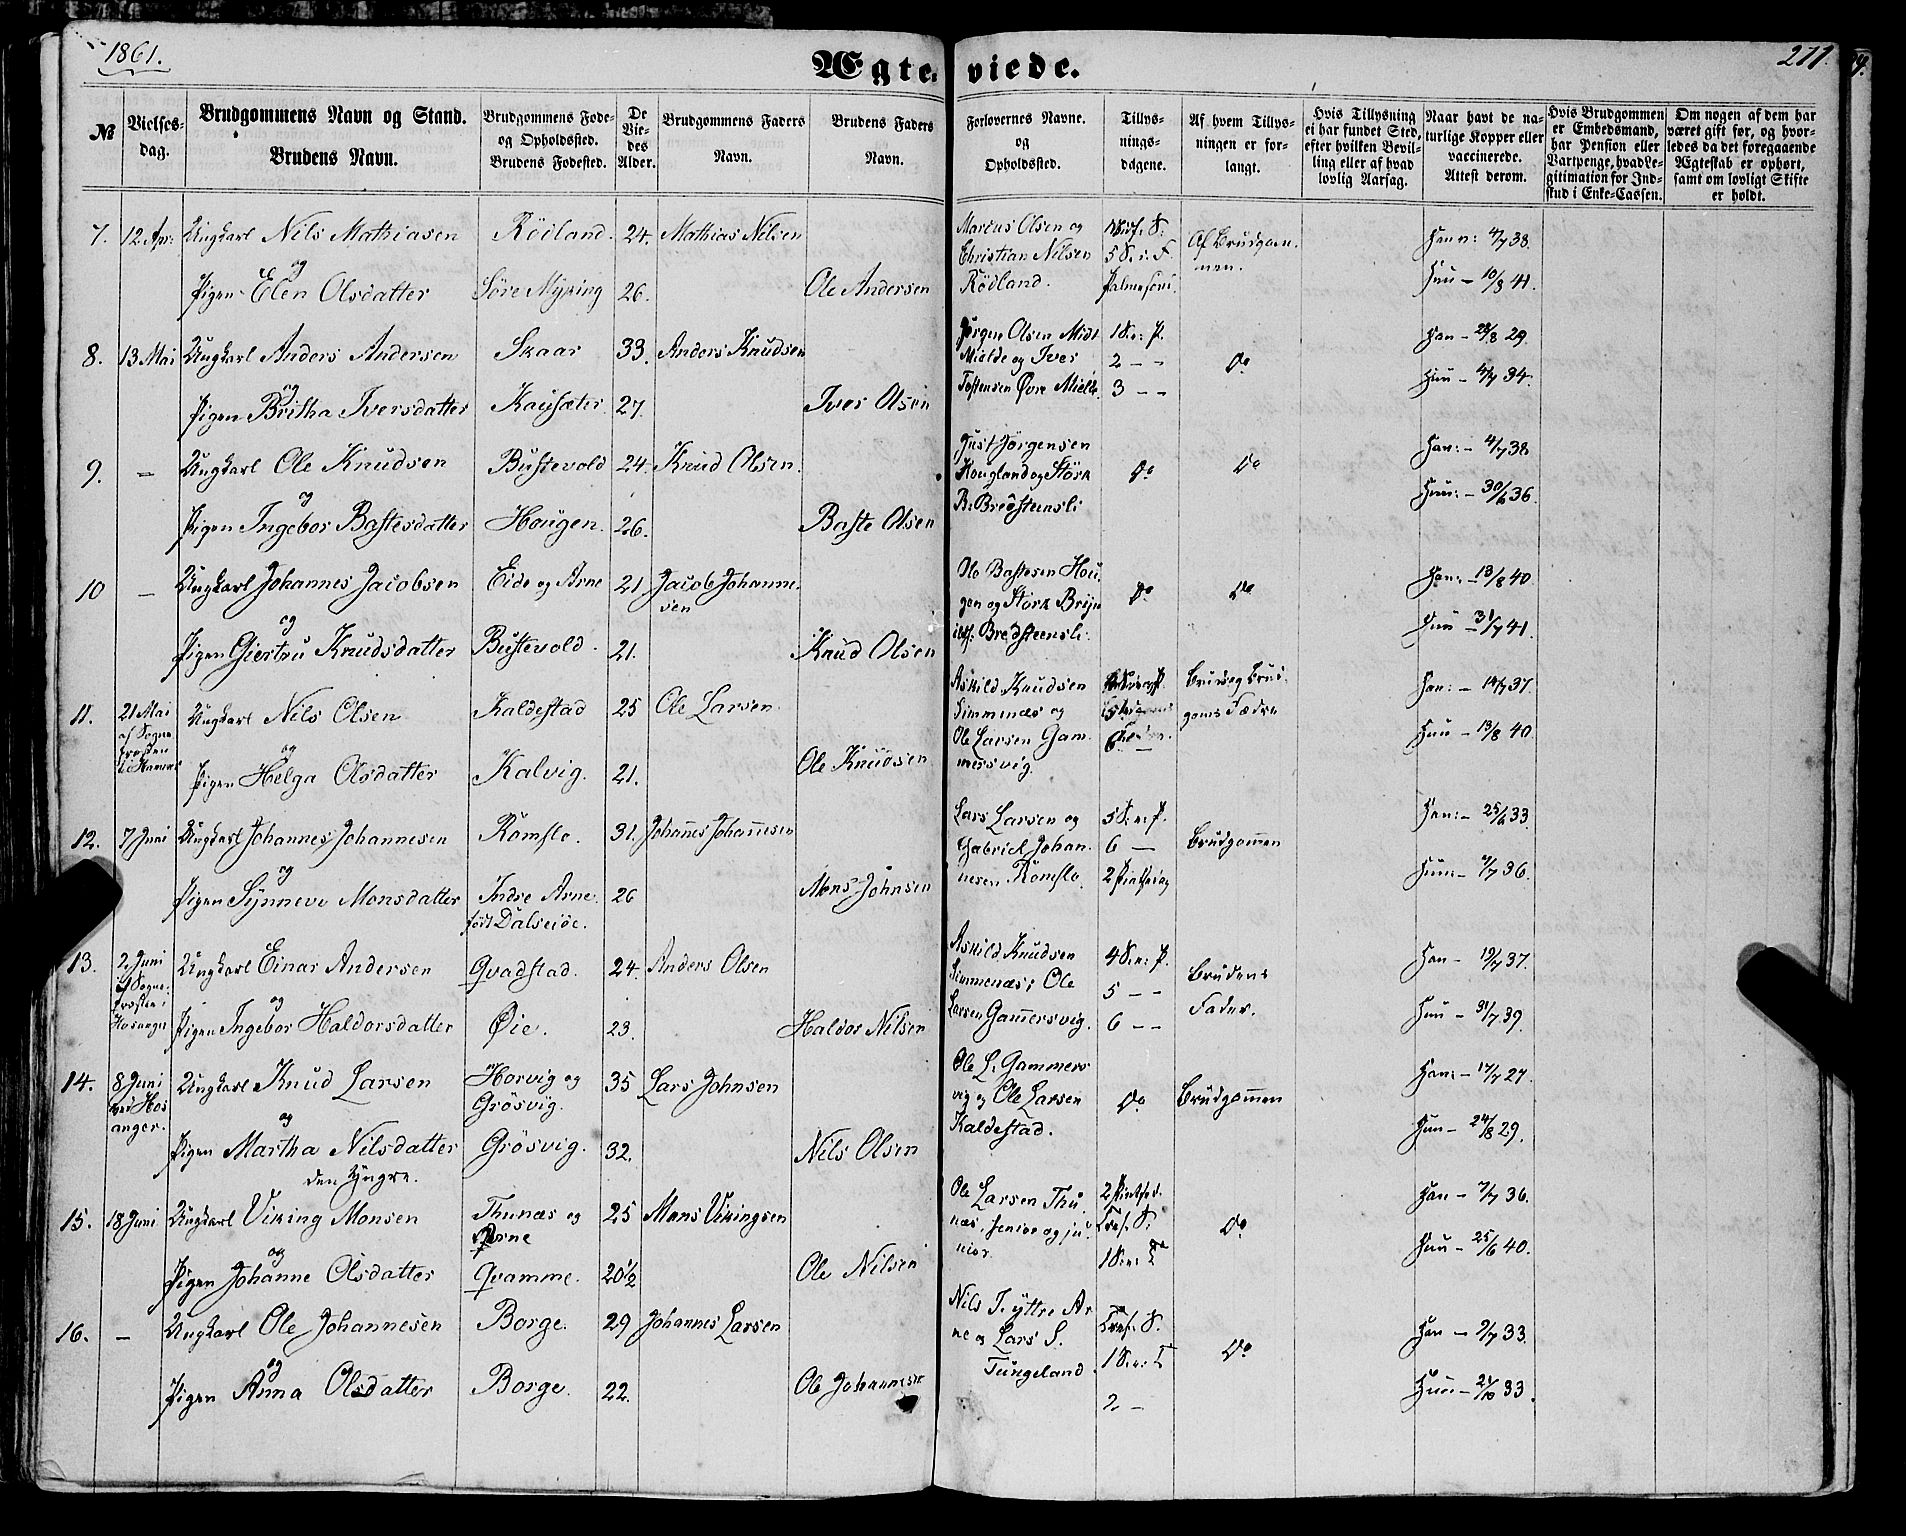 1861.
Ægteviede.
277.
№
Vielses-
dag.
Brudgommens Navn og Stand.
Brudens Navn.
Brudgommens Føde-
og Opholdssted.
Brudens Fødested.
De
Vie-
des
Alder.
Brudgommens Faders
Navn.
Brudens Faders
Navn.
Forlovernes Navne.
og
Opholdssted.
Tillys-
nings-
dagene.
Af hvem Tillys-
ningen er for-
langt.
Hvis Tillysning
ei har fundet Sted,
efter hvilken Bevil-
ling eller af hvad
lovlig Aarsag.
Naar havt de na-
turlige Kopper eller
vaccinerede.
Attest derom.
Hvis Brudgommen
er Embedsmand,
har Pension eller
Vartpenge, hvad Le-
gitimation for Ind-
skud i Enke-Cassen.
Om nogen af dem har
været gift før, og hvor-
ledes da det foregaaende
Ægteskab er ophørt,
samt om lovligt Skifte
er holdt.
7. 12 Apr: Ungkarl Nils Mathiasen Rödland. 24. Mathias Nilsen
og
Pigen Elen Olsdatter Söre Myking 26. Ole Andersen
Marcus Olsen og
Christian Nilsen 5 S. i F.
Rödland. Palmesönd.
Af Brudgom-
men.
Han: 4/7 38.
Hun - 10/8 41.
8. 13 Mai Ungkarl Anders Andersen Skaar 33. Anders Knudsen
og
Pigen Britha Iversdatter Kausæter 27. Iver Olsen
Jørgen Olsen Midt 1 S. e: P.
Mielde og Iver 2 - - Do
Tostensen Øvre Mielde 3 - -
Han - 28/8 29.
Hun - 4/7 34.
9. - Ungkarl Ole Knudsen Bustevold 24. Knud Olsen.
og
Pigen Ingebor Bastesdatter Hougen. 26. Baste Olsen
Just Jörgensen
Houglandog Störk Do Do
B. Bredsteensli
Han: - 4/7 38
Hun: - 30/6 36.
10 - Ungkarl Johannes Jacobsen Eide og Arne 21 Jacob Johanne-
sen
og
Pigen Giertru Knudsdatter Bustevold. 21. Knud Olsen
Ole Bastesen Hou-
gen og Störk Brÿn Do Do
Bredsteensli.
Han: - 13/8 40
Hun - 31/7 41.
11. 21 Mai Ungkarl Nils Olsen Kaldestad 25 Ole Larsen
af Sogne
præsten
i Hammer
og
Pigen Helga Olsdatter Kalvig. 21. Ole Knudsen
Askild Knudsen
Simmenæs og
Ole Larsen Gam-
mersvig.
6 -
Brud og Brud-
goms Fædre
Han: - 14/7 37.
Hun - 13/8 40.
12. 7 Juni Ungkarl Johannes Johannesen Romslo. 31. Johanes Johanesen
og
Pigen Sÿnneve Monsdatter Indre Arne. 26 Mons Johnsen
född Dalseide.
Lars Larsen og 5 S. e: P.
Gabriel Johan- 6 - Brudgommen
nesen Romslo. 2 Pintsedag
Han: - 25/6 33.
Hun - 7/7 36.
13. 2 Juni Ungkarl Einar Andersen Qvadstad. 24. Anders Olsen
af Sogne-
præsten i
Hosanger
og
Pigen Ingebor Haldorsdatter Øie. 23. Haldor Nilsen
Askild Knudsen 4 S. e: P.
Simmenæs; Ole 5 - - Brudens
Larsen Gammersvig. 6 - - Fader.
Han - 19/7 37.
Hun - 31/7 39.
14. 8 Juni Ungkarl Knud Larsen Horvig og 35 Lars Johnsen
ved Hos
anger.
Grösvig.
og
Pigen Martha Nilsdatter Grösvig. 32. Nils Olsen
den Yngre.
Ole L. Gammers-
vig og Ole Larsen Do Brudgommen
Kaldestad.
Han: - 17/7 27.
Hun - 24/8 29.
15. 18 Juni Ungkarl Viking Monsen Thunæs og 25 Mons Vikingsen
Arne
og
Pigen Johanne Olsdatter Qvamme. 20 1/2 Ole Nilsen
Ole Larsen Thu- 2 Pintsed.
næs, senior og ju- Tref: S. Do
nior. 1 S. e: T
Han - 7/7 36.
Hun - 25/6 40.
16. - Ungkarl Ole Johannesen Borge. 29 Johannes Larsen
og
Pigen Anna Olsdatter Borge. 22. Ole Johannesen
Nils I. yttre Ar- Tref: S.
ne og Lars S. 1 S. e: T Do
Tungeland. 2 -
Han - 2/7 33.
Hun - 24/10 33.